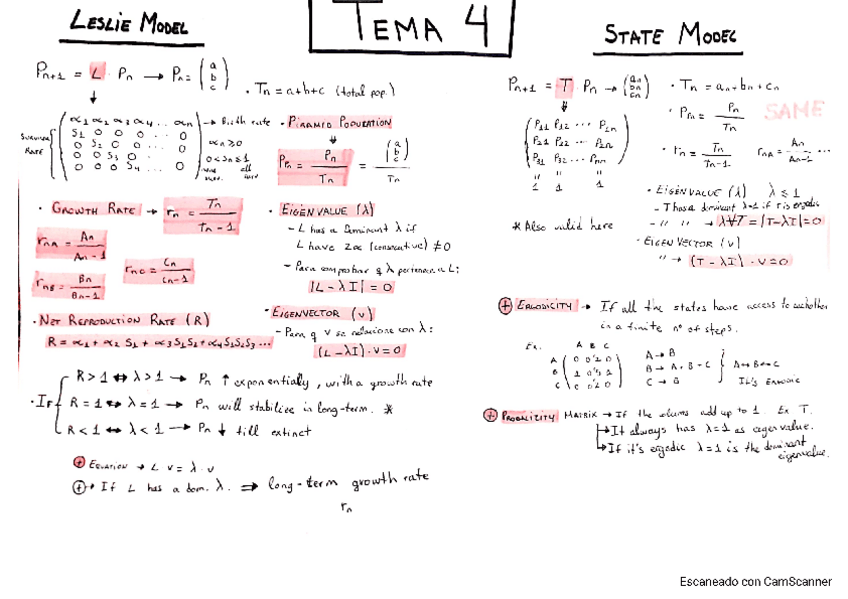 TEMA 4
LESLIE MODEL
Pn+1 = L · Pn → Pn = (a b c)
· Tn = a+b+c (total pop.)
SURVIVAL RATE
α1 α2 α3 α4 .. αn → Birth rate
S1 0 0 0 ... 0
0 S2 0 0 ... 0
0 0 S3 0 .. 0
0 0 0 S4 ... 0
αn ≥ 0
0 < Sn ≤ 1
· PIRAMID POPULATION
PPn = Pn / Tn = (a b c) / Tn
· GROWTH RATE → rn = Tn / Tn-1
rnA = An / An-1
rnB = Bn / Bn-1
rnC = Cn / Cn-1
· EIGENVALUE (λ)
- L has a Dominant λ if
L have 2α (consecutive) ≠ 0
- Para comprobar q λ pertenece a L:
|L - λI| = 0
· NET REPRODUCTION RATE (R)
R = α1 + α2 S1 + α3 S1 S2 + α4 S1 S2 S3 ...
· EIGENVECTOR (v)
- Para q v se relacione con λ:
(L - λI) · v = 0
· IF
R > 1 ↔ λ > 1 → Pn ↑ exponentially, with a growth rate
R = 1 ↔ λ = 1 → Pn will stabilize in long-term. *
R < 1 ↔ λ < 1 → Pn ↓ till extinct
+ EQUATION → L v = λ · v
+ → If L has a dom. λ. ⇒ long-term growth rate
rn
STATE MODEL
Pn+1 = T Pn → (an bn cn)
· Tn = an + bn + cn
P11 P12 ... P1n
P21 P22 ... P2n
P31 P32 ... Pnn
" " "
1 1 1
· PPn = Pn / Tn
SAME
· rn = Tn / Tn-1 rnA = An / An-1 ...
* Also valid here
· EIGENVALUE (λ) λ ≤ 1
- T has a dominant λ=1 if T is ergodic
- " " → λ∀T = |T-λI| = 0
· EIGENVECTOR (v)
" → (T - λI) · v = 0
+ ERGODICITY → If all the states have access to eachother
in a finite nº of steps.
Ex.
A B C
A
B
C
A → B
B → A, B, C
C → B
It's ERGODIC
+ PROBABILITY MATRIX → If the colums add up to 1. Ex T.
↳ It always has λ=1 as eigenvalue.
↳ If it's ergodic λ=1 is the dominant
eigenvalue.
Escaneado con CamScanner